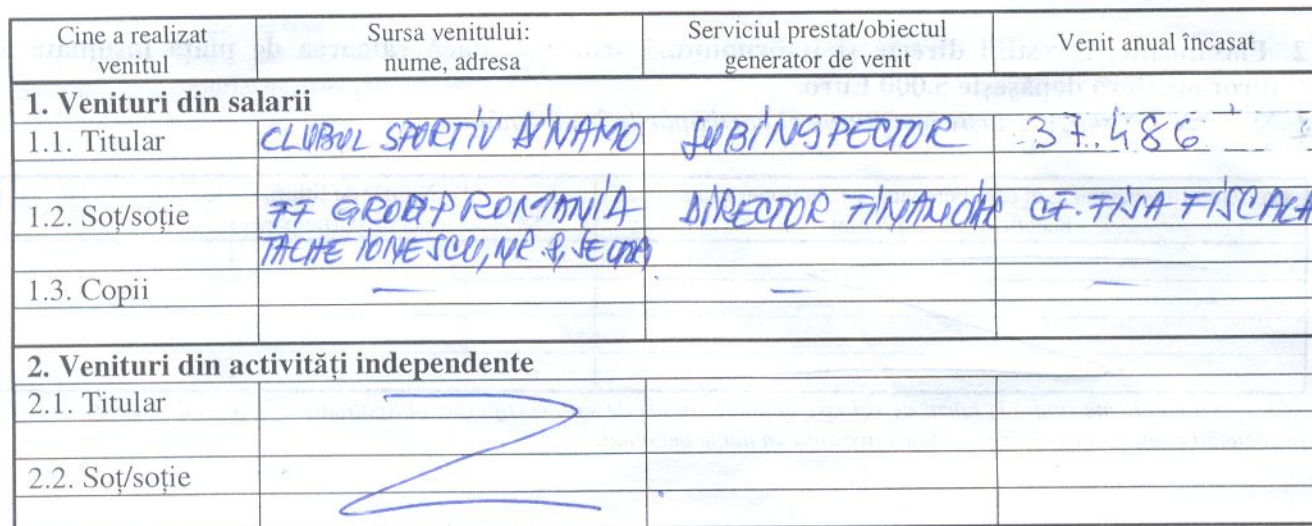 Cine a realizat venitul Sursa venitului: nume, adresa Serviciul prestat/obiectul generator de venit Venit anual încasat
1. Venituri din salarii
1.1. Titular CLUBUL SPORTIV DINAMO SUBINSPECTOR 37.486
1.2. Soț/soție GROUP ROMANIA DIRECTOR FINANCIAR CF. FISA FISCALA
TACHE IONESCU, NR. 
1.3. Copii — — —
2. Venituri din activități independente
2.1. Titular
2.2. Soț/soție